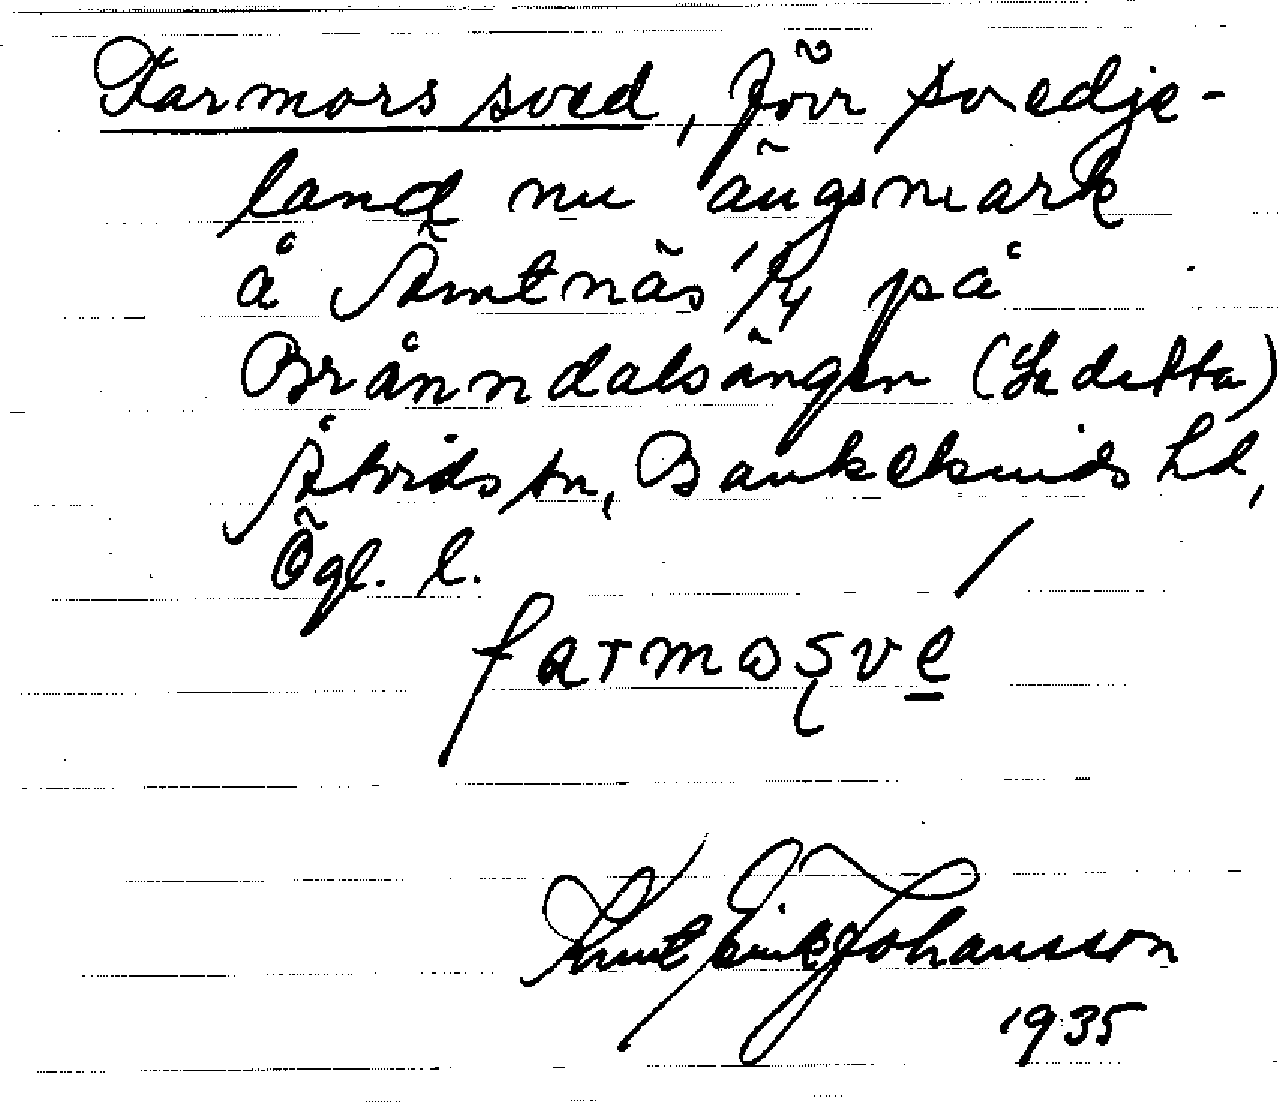 Farmors sved, förr svedje-
land nu ängsmark
å Ämtnäs 1/4 på
Brånndalsängen (Se detta)
Åtvids sn, Bankekinds hd,
Ögl. l.
farmoșve̲
Knut Erik Johansson
1935